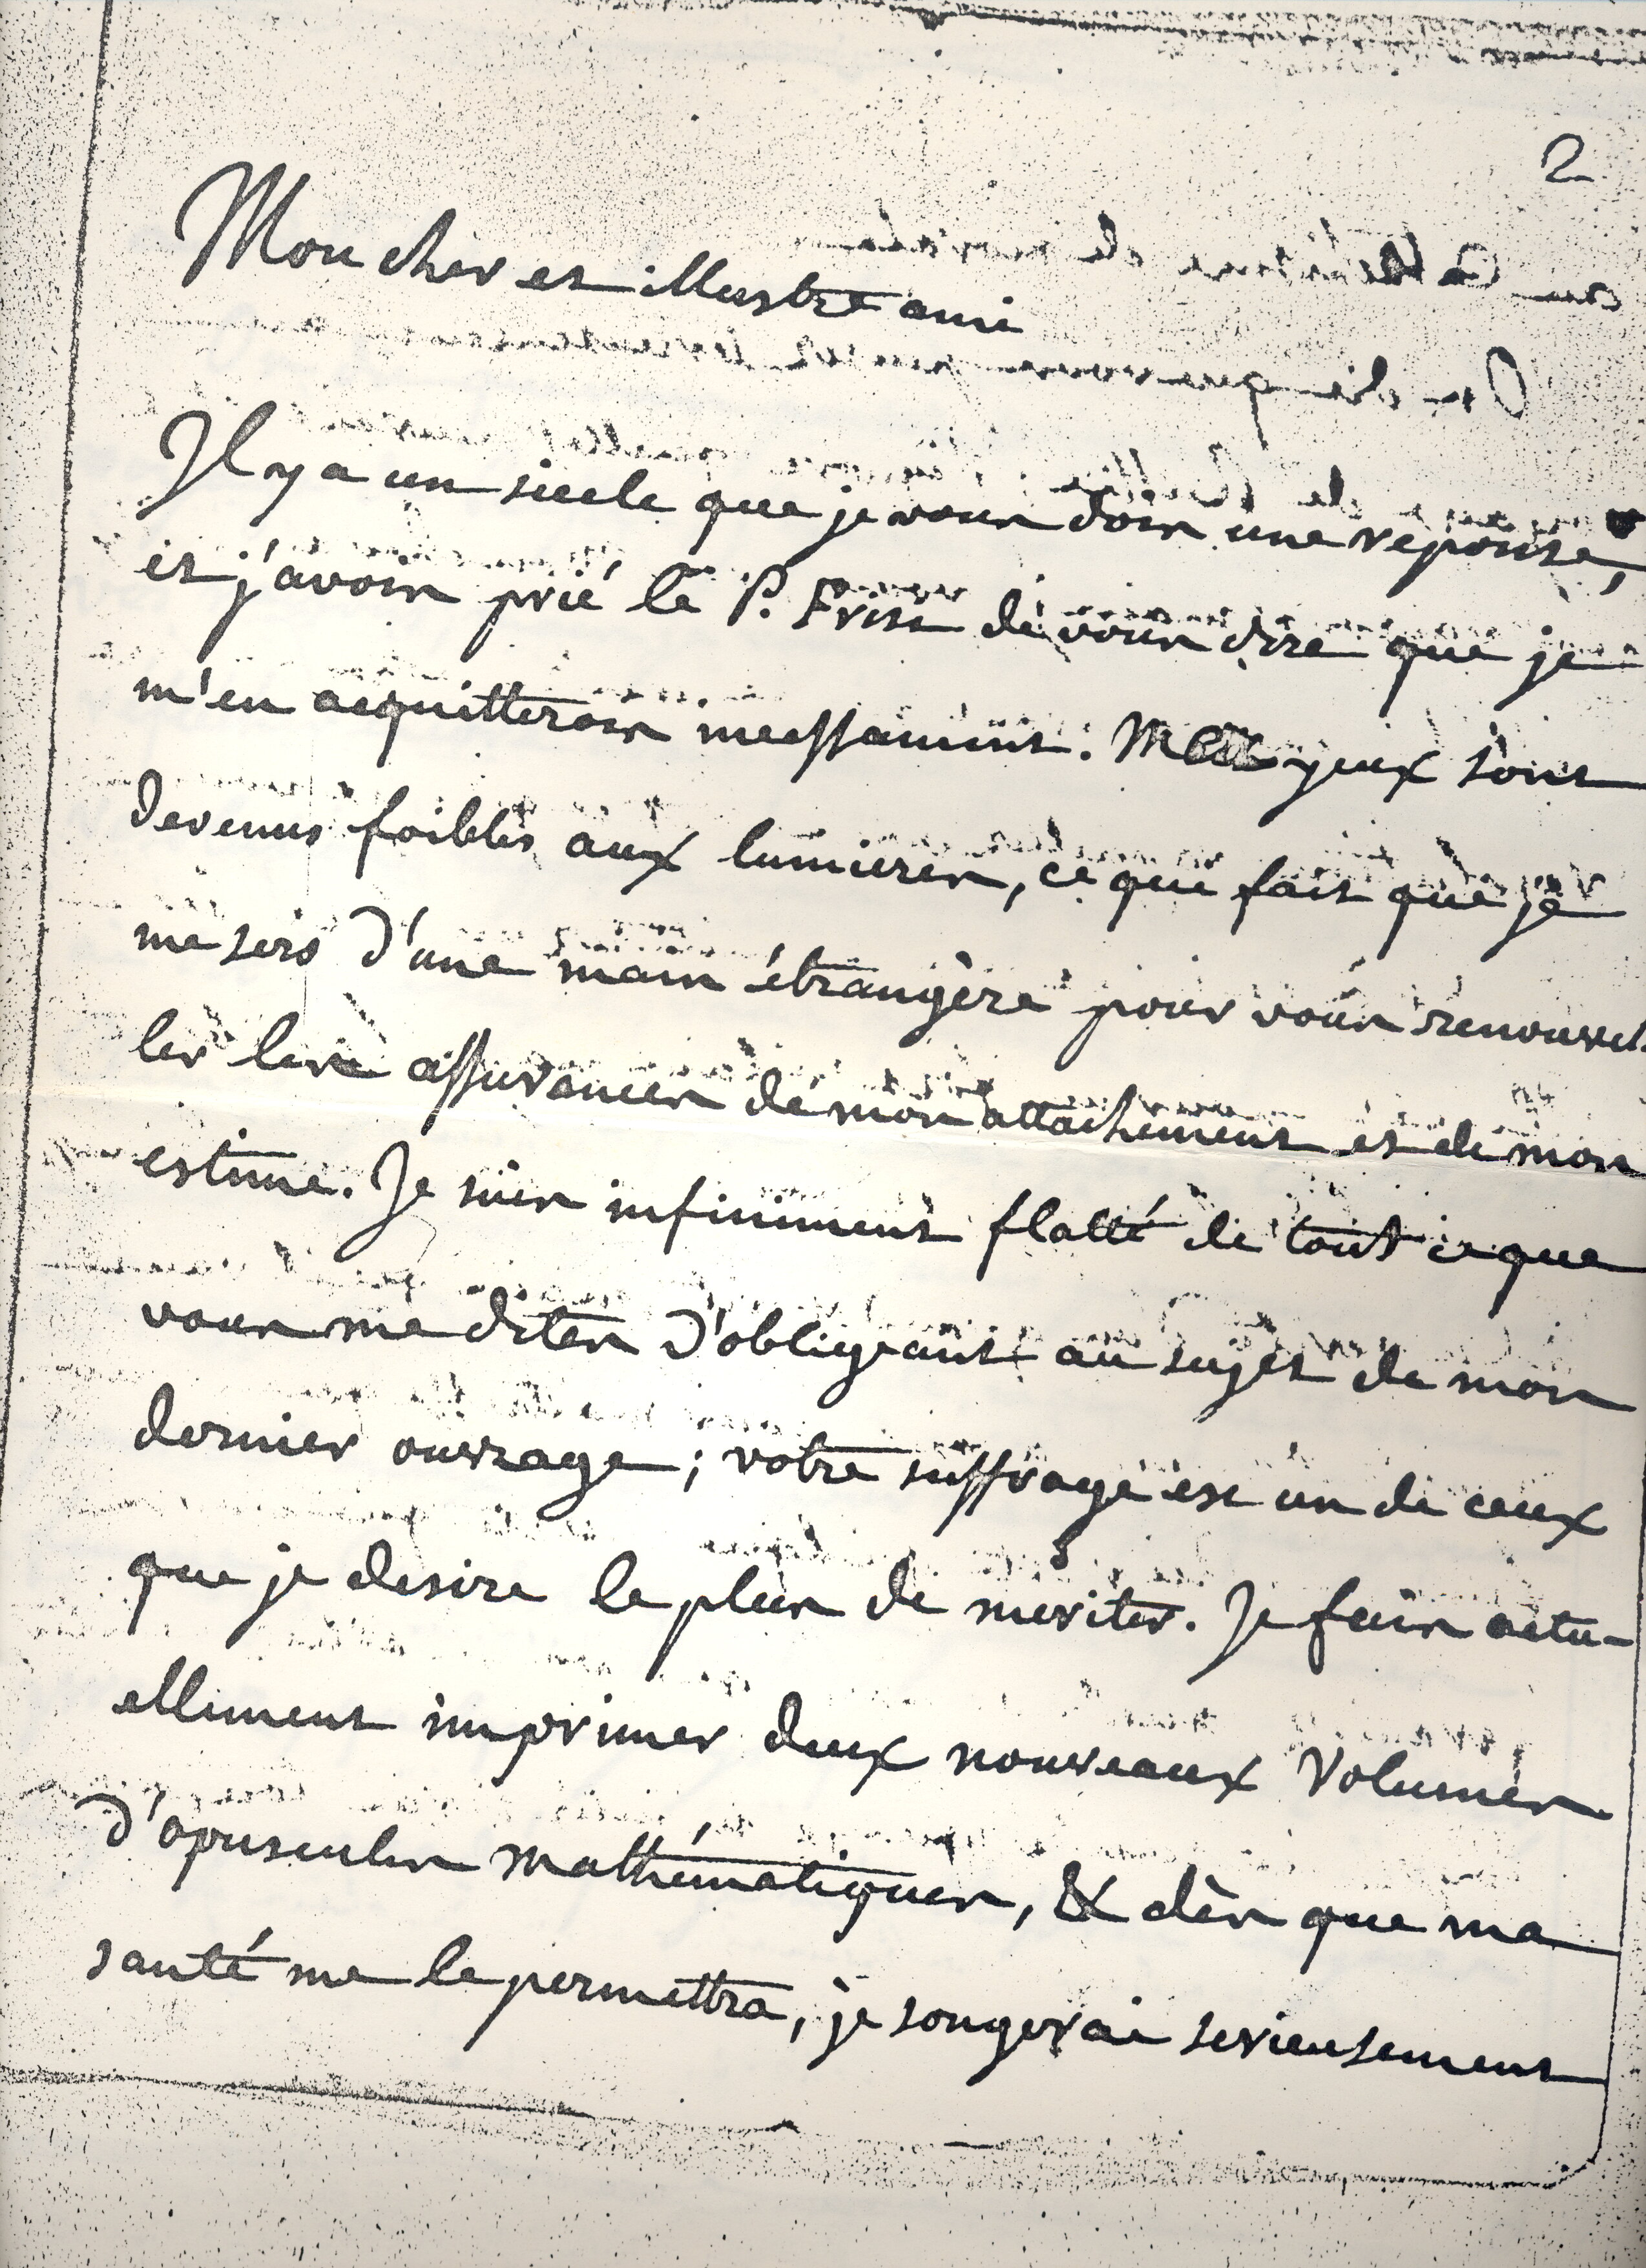 2
Mon cher et illustre ami
Il y a un siecle que je vous dois une reponse,
et j'avois prié le P. Frisi de vous dire que je
m'en acquitterois incessamment. Mes yeux sont
devenus foibles aux lumieres, ce qui fait que je
me sers d'une main étrangère pour vous renouvel-
ler les assurances de mon attachement et de mon
estime. Je suis infiniment flatté de tout ce que
vous me dites d'obligeant au sujet de mon
dernier ouvrage ; votre suffrage est un de ceux
que je desire le plus de meriter. Je fais actu-
ellement imprimer deux nouveaux Volumes
d'opuscules mathématiques, & dès que ma
santé me le permettra, je songerai serieusement